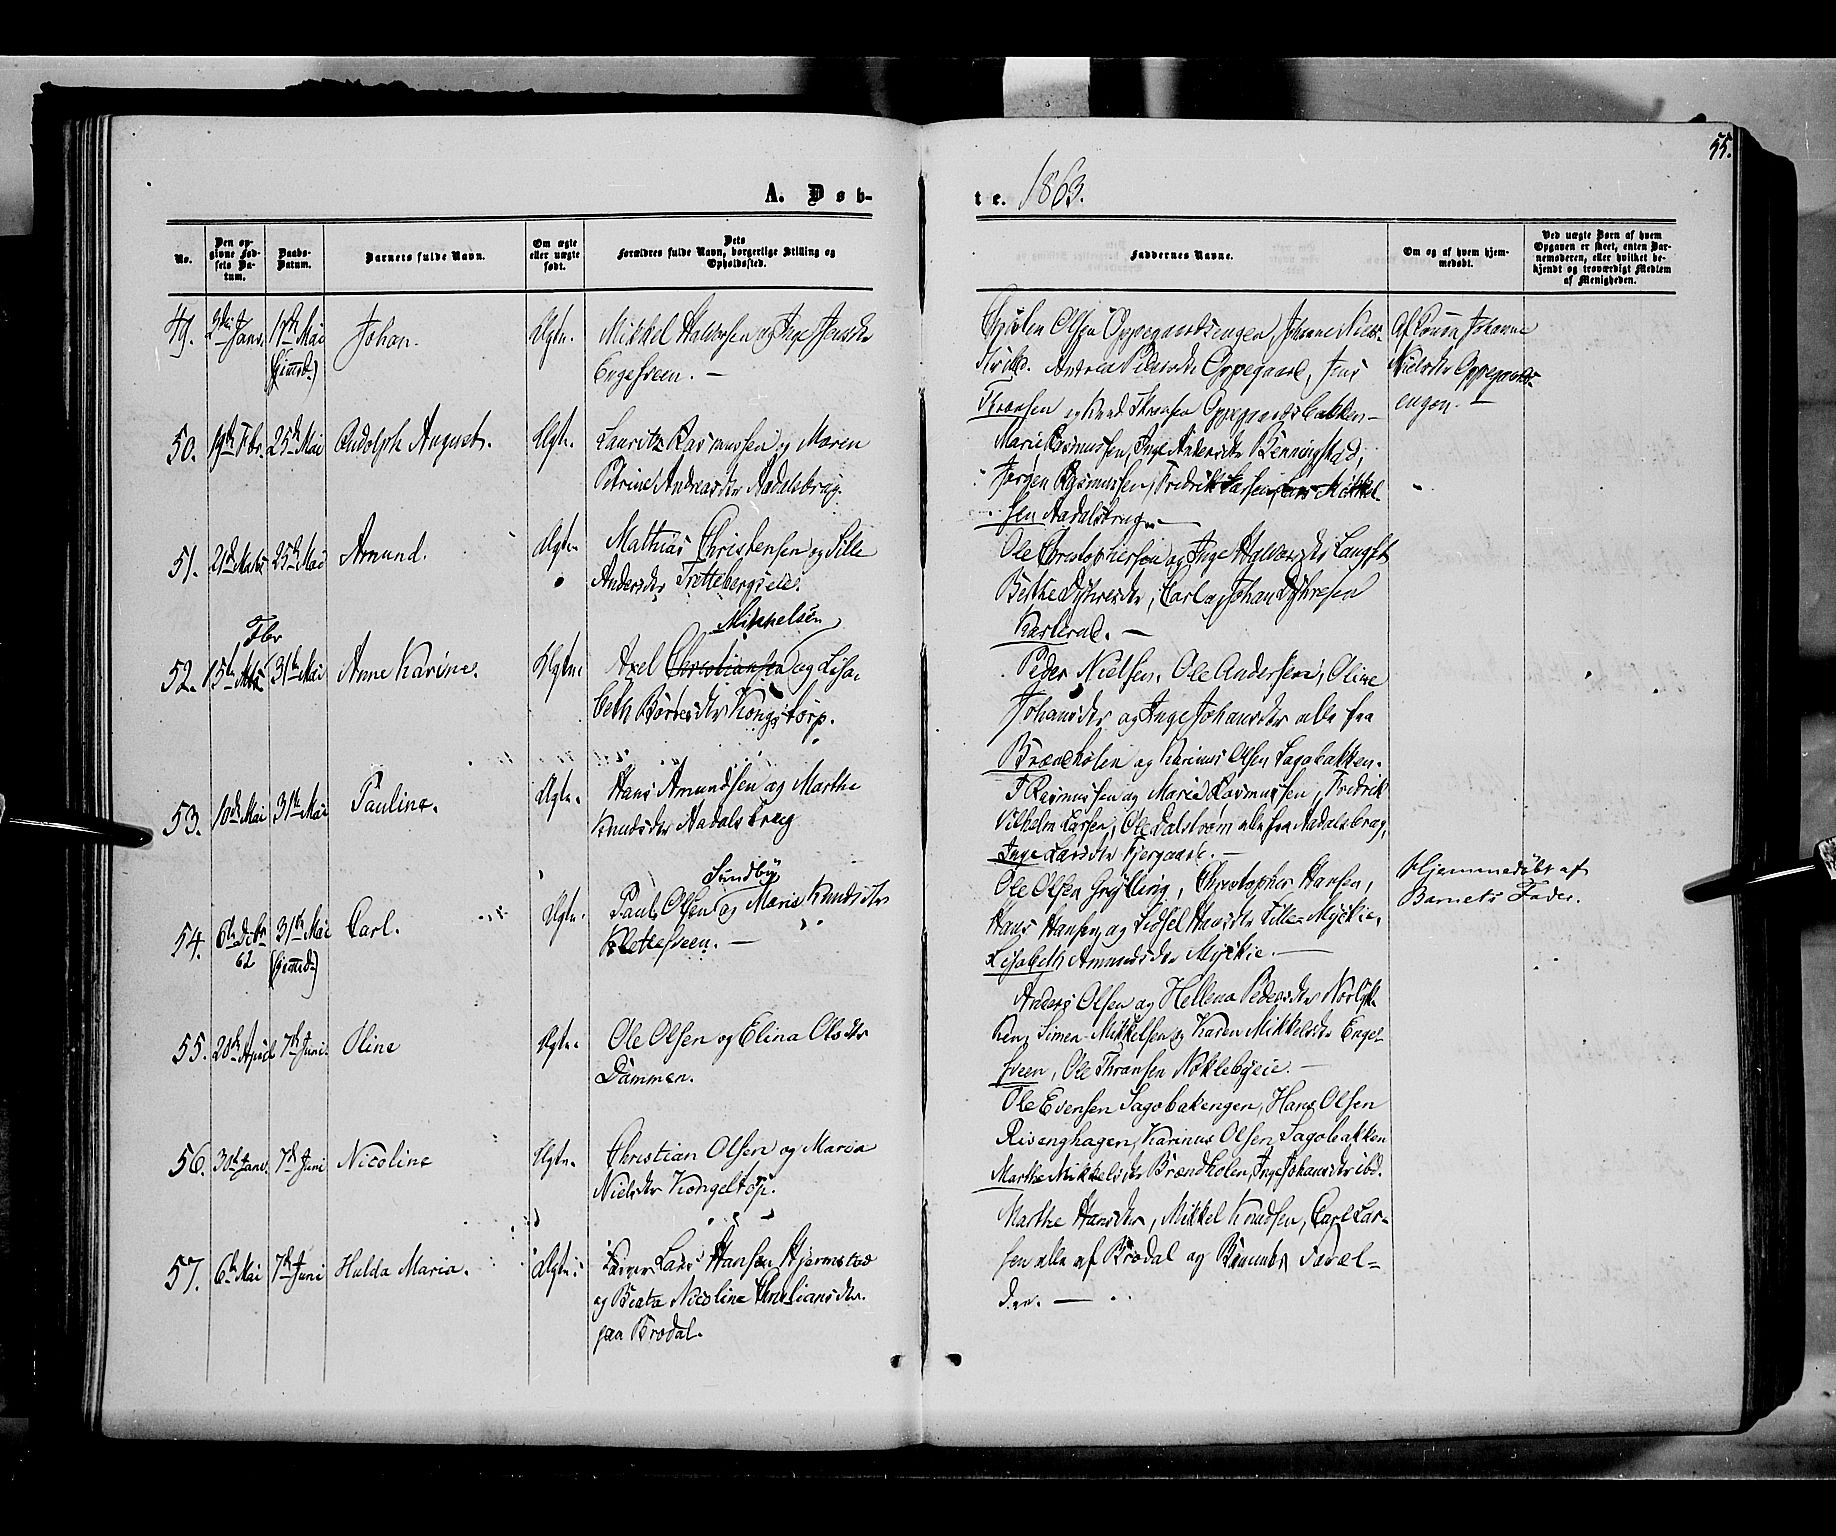 55.
A. Døb-
te. 1863.
No.
Den op-
givne Fød-
sels Da-
tum.
Daabs-
Datum.
Barnets fulde Navn.
Om ægte
eller uægte
født.
Dets
Forældres fulde Navn, borgerlige Stilling og
Opholdssted.
Faddernes Navne.
Om og af hvem hjem-
medøbt.
Ved uægte Børn af hvem
Opgaven er skeet, enten Bar-
nemoderen, eller hvilket be-
kjendt og troværdigt Medlem
af Menigheden.
49. Janr. Mai Johan. Ægte. Mikkel Halvorsen og Inge Jensdtr
Engesveen. —
Olsen Oppegaardsengen, Johanne Niels-
dtr ibd. Pedersdtr Oppegaard, Jens
Thronsen og Thronsen Oppegaardsbakken —
Af Johanne
Nielsdtr Oppegaards-
engen. —
50. 19de Fbr. 25de Mai August. Ægte. Lauritz Rasmussen og Maren
Petrine Andreasdtr Aadalsbrug.
Marie Rasmussen, Inge Andersdtr Benningstad,
Jørgen Rasmussen, Fredrik Larsen, Mikkel-
sen Aadalsbrug. —
51. 21de Marts 25de Mai Amund. Ægte. Mathias Christensen og Sille
Andersdtr Frettebergseie.
Ole Christophersen og Inge Halvorsdtr
Berthe Carl og Johan
—
52. 15de Fbr 31te Mai Anne Karine. Ægte. Axel Mikkelsen og Lisa-
beth Kongstorp.
Peder Nielsen, Ole Andersen, Oline
Johansdtr og Inge Johansdtr alle fra
Brændholen og Karinus Olsen Sagbakken.
53. 10de Mai 31te Mai Pauline. Ægte. Hans Amundsen og Marthe
Knudsdtr Aadalsbrug
Rasmussen og Marie Rasmussen, Fredrik
Vilhelm Larsen, Ole Dalstrøm alle fra Aadalsbrug,
Inge Larsdtr —
54. 6te Decbr 62 31te Mai Carl. Ægte. Paul Olsen Sundby og Marie Knudsdtr
Klettesveen. —
Ole Olsen Grylling, Christopher Hansen,
Hans Hansen og Sidsel Hansdtr Lille-Myckie,
Lisabeth Amundsdtr Myckie. —
Hjemmedøbt af
Barnets Fader.
55. 20de April 7de Juni Oline Ægte. Ole Olsen og Elina Olsdtr
Dammen.
Anders Olsen og Hellena Pedersdtr Norlyk-
ken, Simen Mikkelsen og Karen Mikkelsdtr Enge-
sveen, Ole Thronsen Nøklebyeie. —
56. 30te Janr. 7de Juni Nicoline Ægte. Christian Olsen og Maria
Nielsdtr Kongstorp.
Ole Evensen Sagbakengen, Hans Olsen
Risenghagen, Karinus Olsen Sagbakken
Marthe Mikkelsdtr Brændholen, Inge Johansdtr ibd.
57. 6te Mai 7de Juni Hulda Maria. Ægte. Lars Hansen Hjermstad
og Beata Nicoline Christiansdtr.
paa Brodal.
Marthe Hansdtr, Mikkel Knudsen, Carl Lar-
sen alle af Brodal og Barnets Foræl-
dre. —